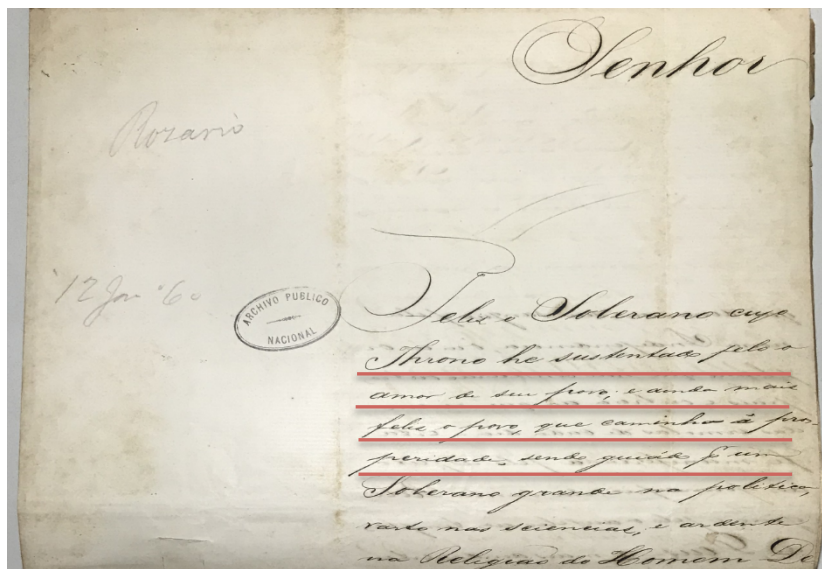 Senhor
Rozario
12 Jan.º 60
ARCHIVO PUBLICO
NACIONAL
Feliz o Soberano cujo
Throno he sustentado pelo o
amor de seu povo, e ainda mais
feliz o povo, que caminha á pros-
peridade, sendo guiado p um
Soberano grande na politica,
vasto nas sciencias, e ardente
na Religião do Homem De